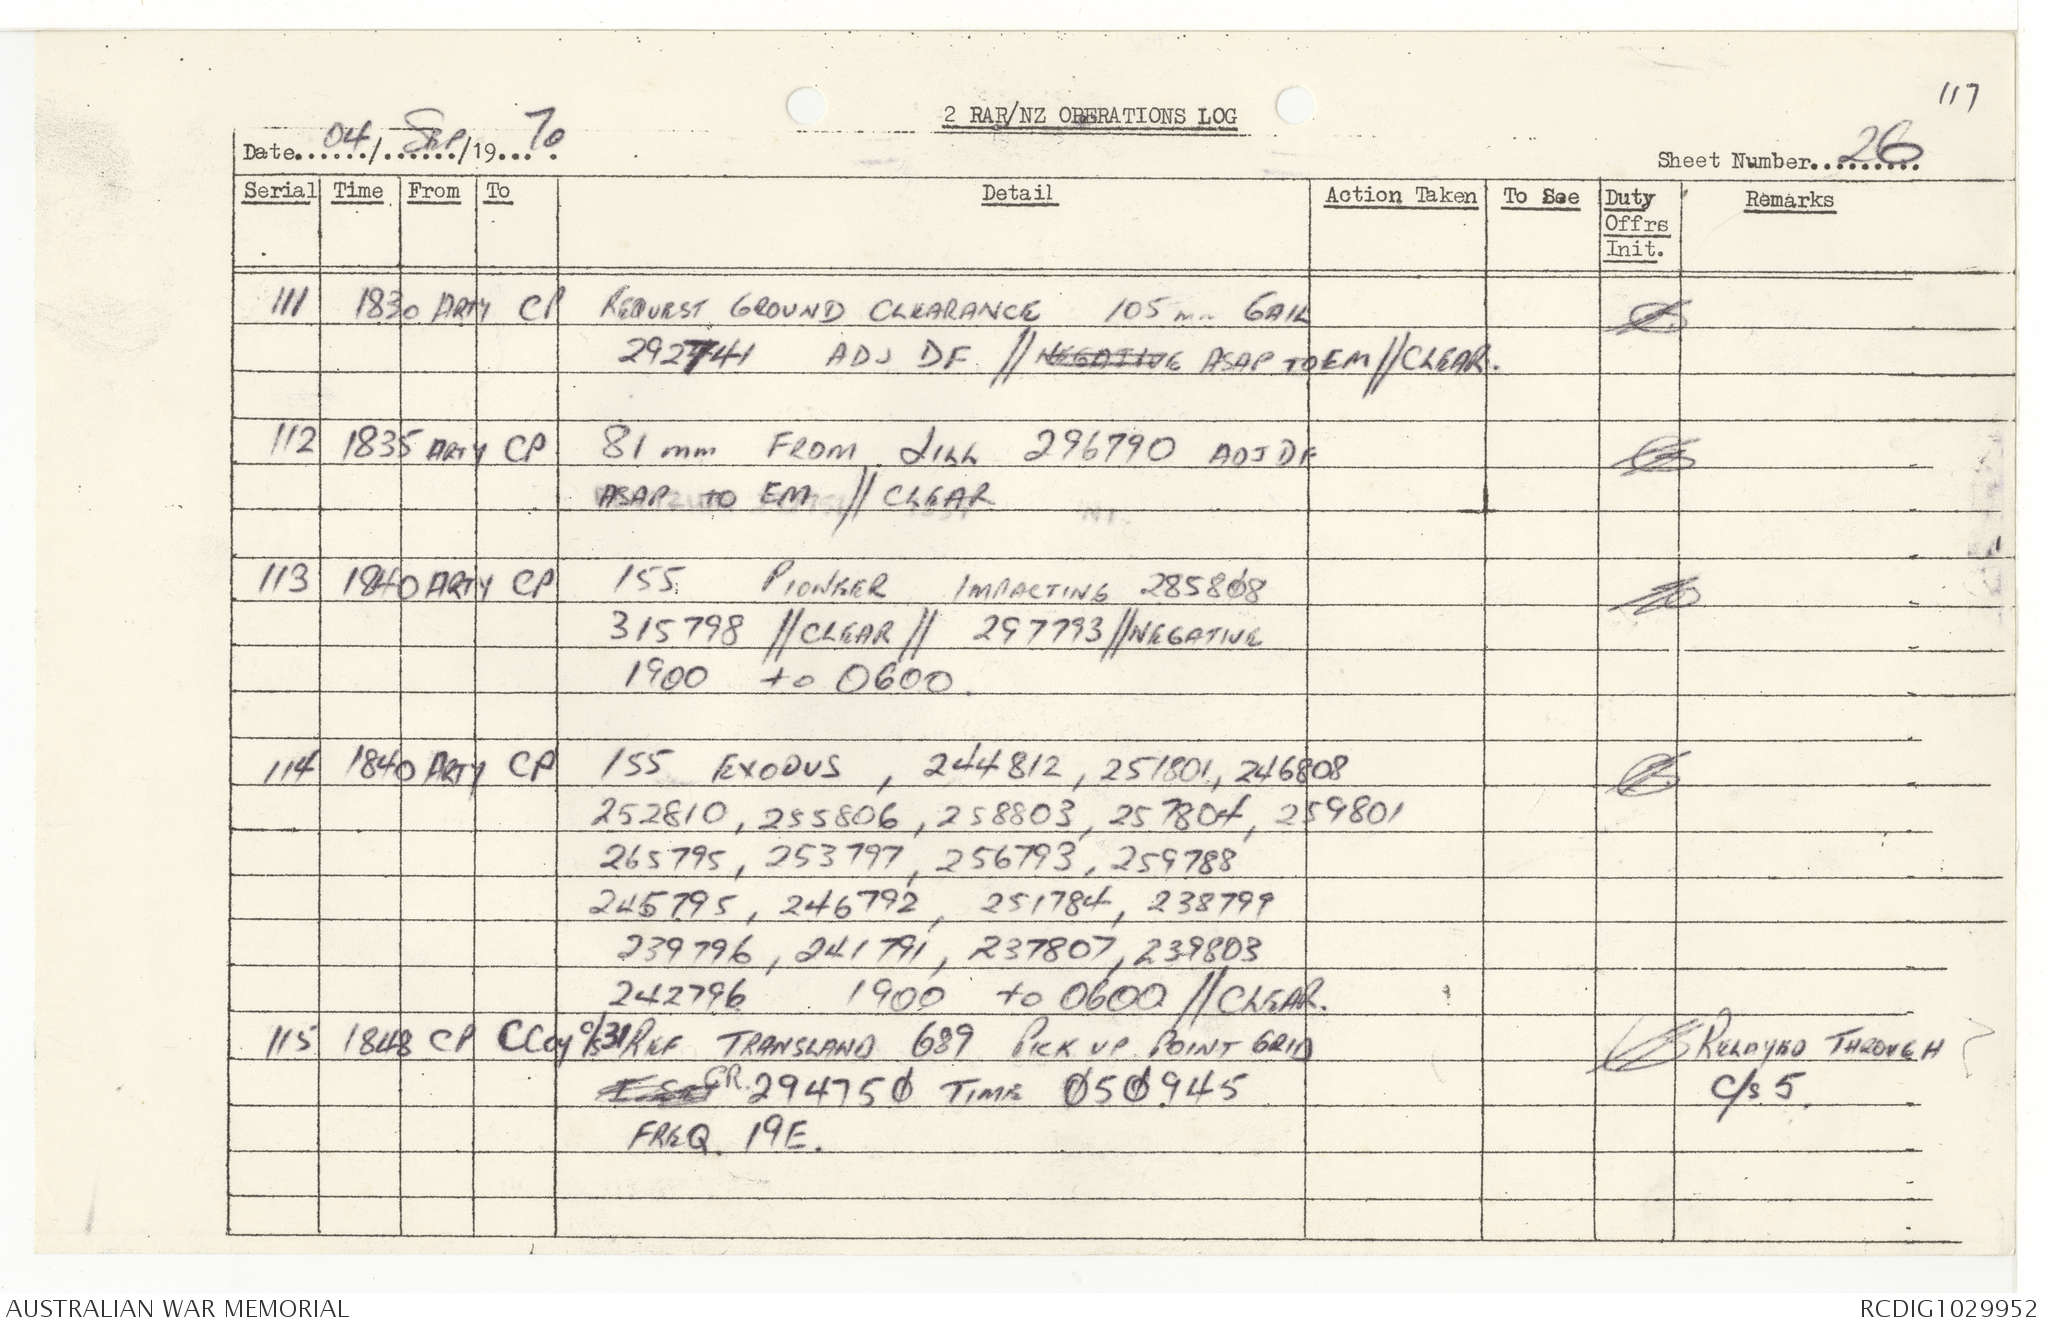 117
2 RAR/NZ OPERATIONS LOG
Date 04/SEP/19 70.
Sheet Number 26
Serial Time From To Detail Action Taken To See Duty Offrs Init. Remarks
111 1830 ARTY CP REQUEST GROUND CLEARANCE 105 mm GAIL
292741 ADJ DF // NEGATIVE ASAP TO EM // CLEAR.
112 1835 ARTY CP 81 mm FROM JILL 296790 ADJ DF
ASAP TO EM // CLEAR
113 1840 ARTY CP 155 PIONEER IMPACTING 285808
315798 // CLEAR // 297793 // NEGATIVE
1900 to 0600.
114 1840 ARTY CP 155 EXODUS, 244812, 251801, 246808
252810, 255806, 258803, 257804, 259801
265795, 253797, 256793, 259788
245795, 246792, 251784, 238799
239796, 241791, 237807, 239803
242796 1900 to 0600 // CLEAR.
115 1848 CP C Coy c/s 31 REF TRANSLAND 689 PICK UP POINT GRID RELAYED THROUGH
GR. 294750 TIME 050945 C/s 5.
FREQ. 19E.
AUSTRALIAN WAR MEMORIAL
RCDIG1029952